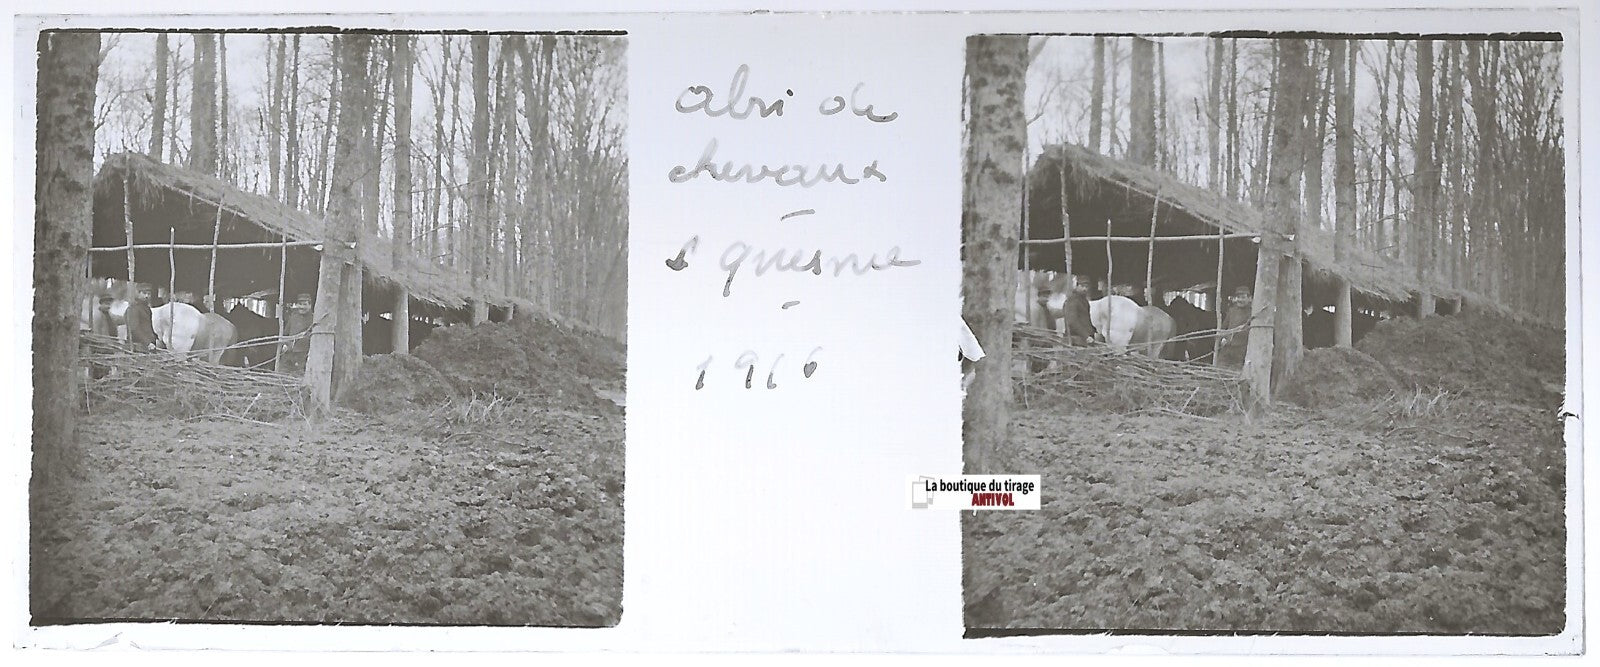 abri de
chevaux
-
quesne
-
1916
La boutique du tirage
ANTIVOL